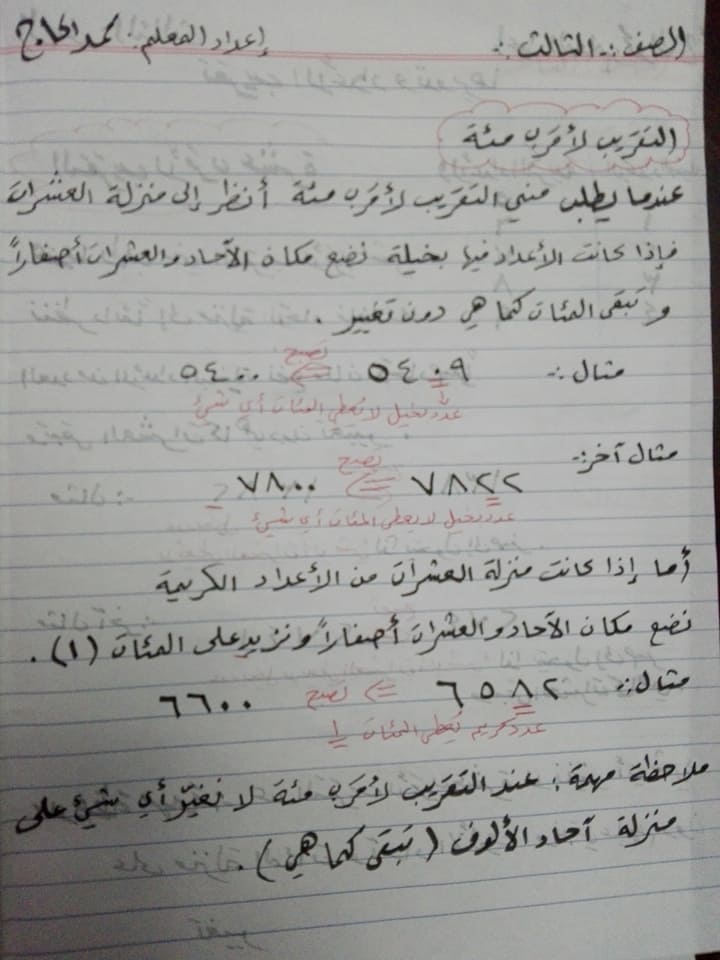 الصف :- الثالث :- إعداد المعلم : محمد الحاج
التقريب لأقرب مئة
عندما يطلب مني التقريب لأقرب مئة أنظر إلى منزلة العشرات
فإذا كانت الأعداد فيها بخيلة نضع مكان الآحاد والعشرات أصفاراً
وتبقى المئات كما هي دون تغيير .
مثال :- ٥٤٠٩ تصبح ⇐ ٥٤٠٠
عدد بخيل لا يعطي المئات أي شيئ
مثال آخر :- ٧٨٢٢ تصبح ⇐ ٧٨٠٠
عدد بخيل لا يعطي المئات أي شيئ
أما إذا كانت منزلة العشرات من الأعداد الكريمة
نضع مكان الآحاد والعشرات أصفاراً ونزيد على المئات (١) .
مثال :- ٦٥٨٢ ⇐ تصبح ٦٦٠٠
عدد كريم يعطي المئات ١
ملاحظة مهمة : عند التقريب لأقرب مئة لا نغيّر أي شيئ على
منزلة آحاد الألوف ( تبقى كما هي ) .